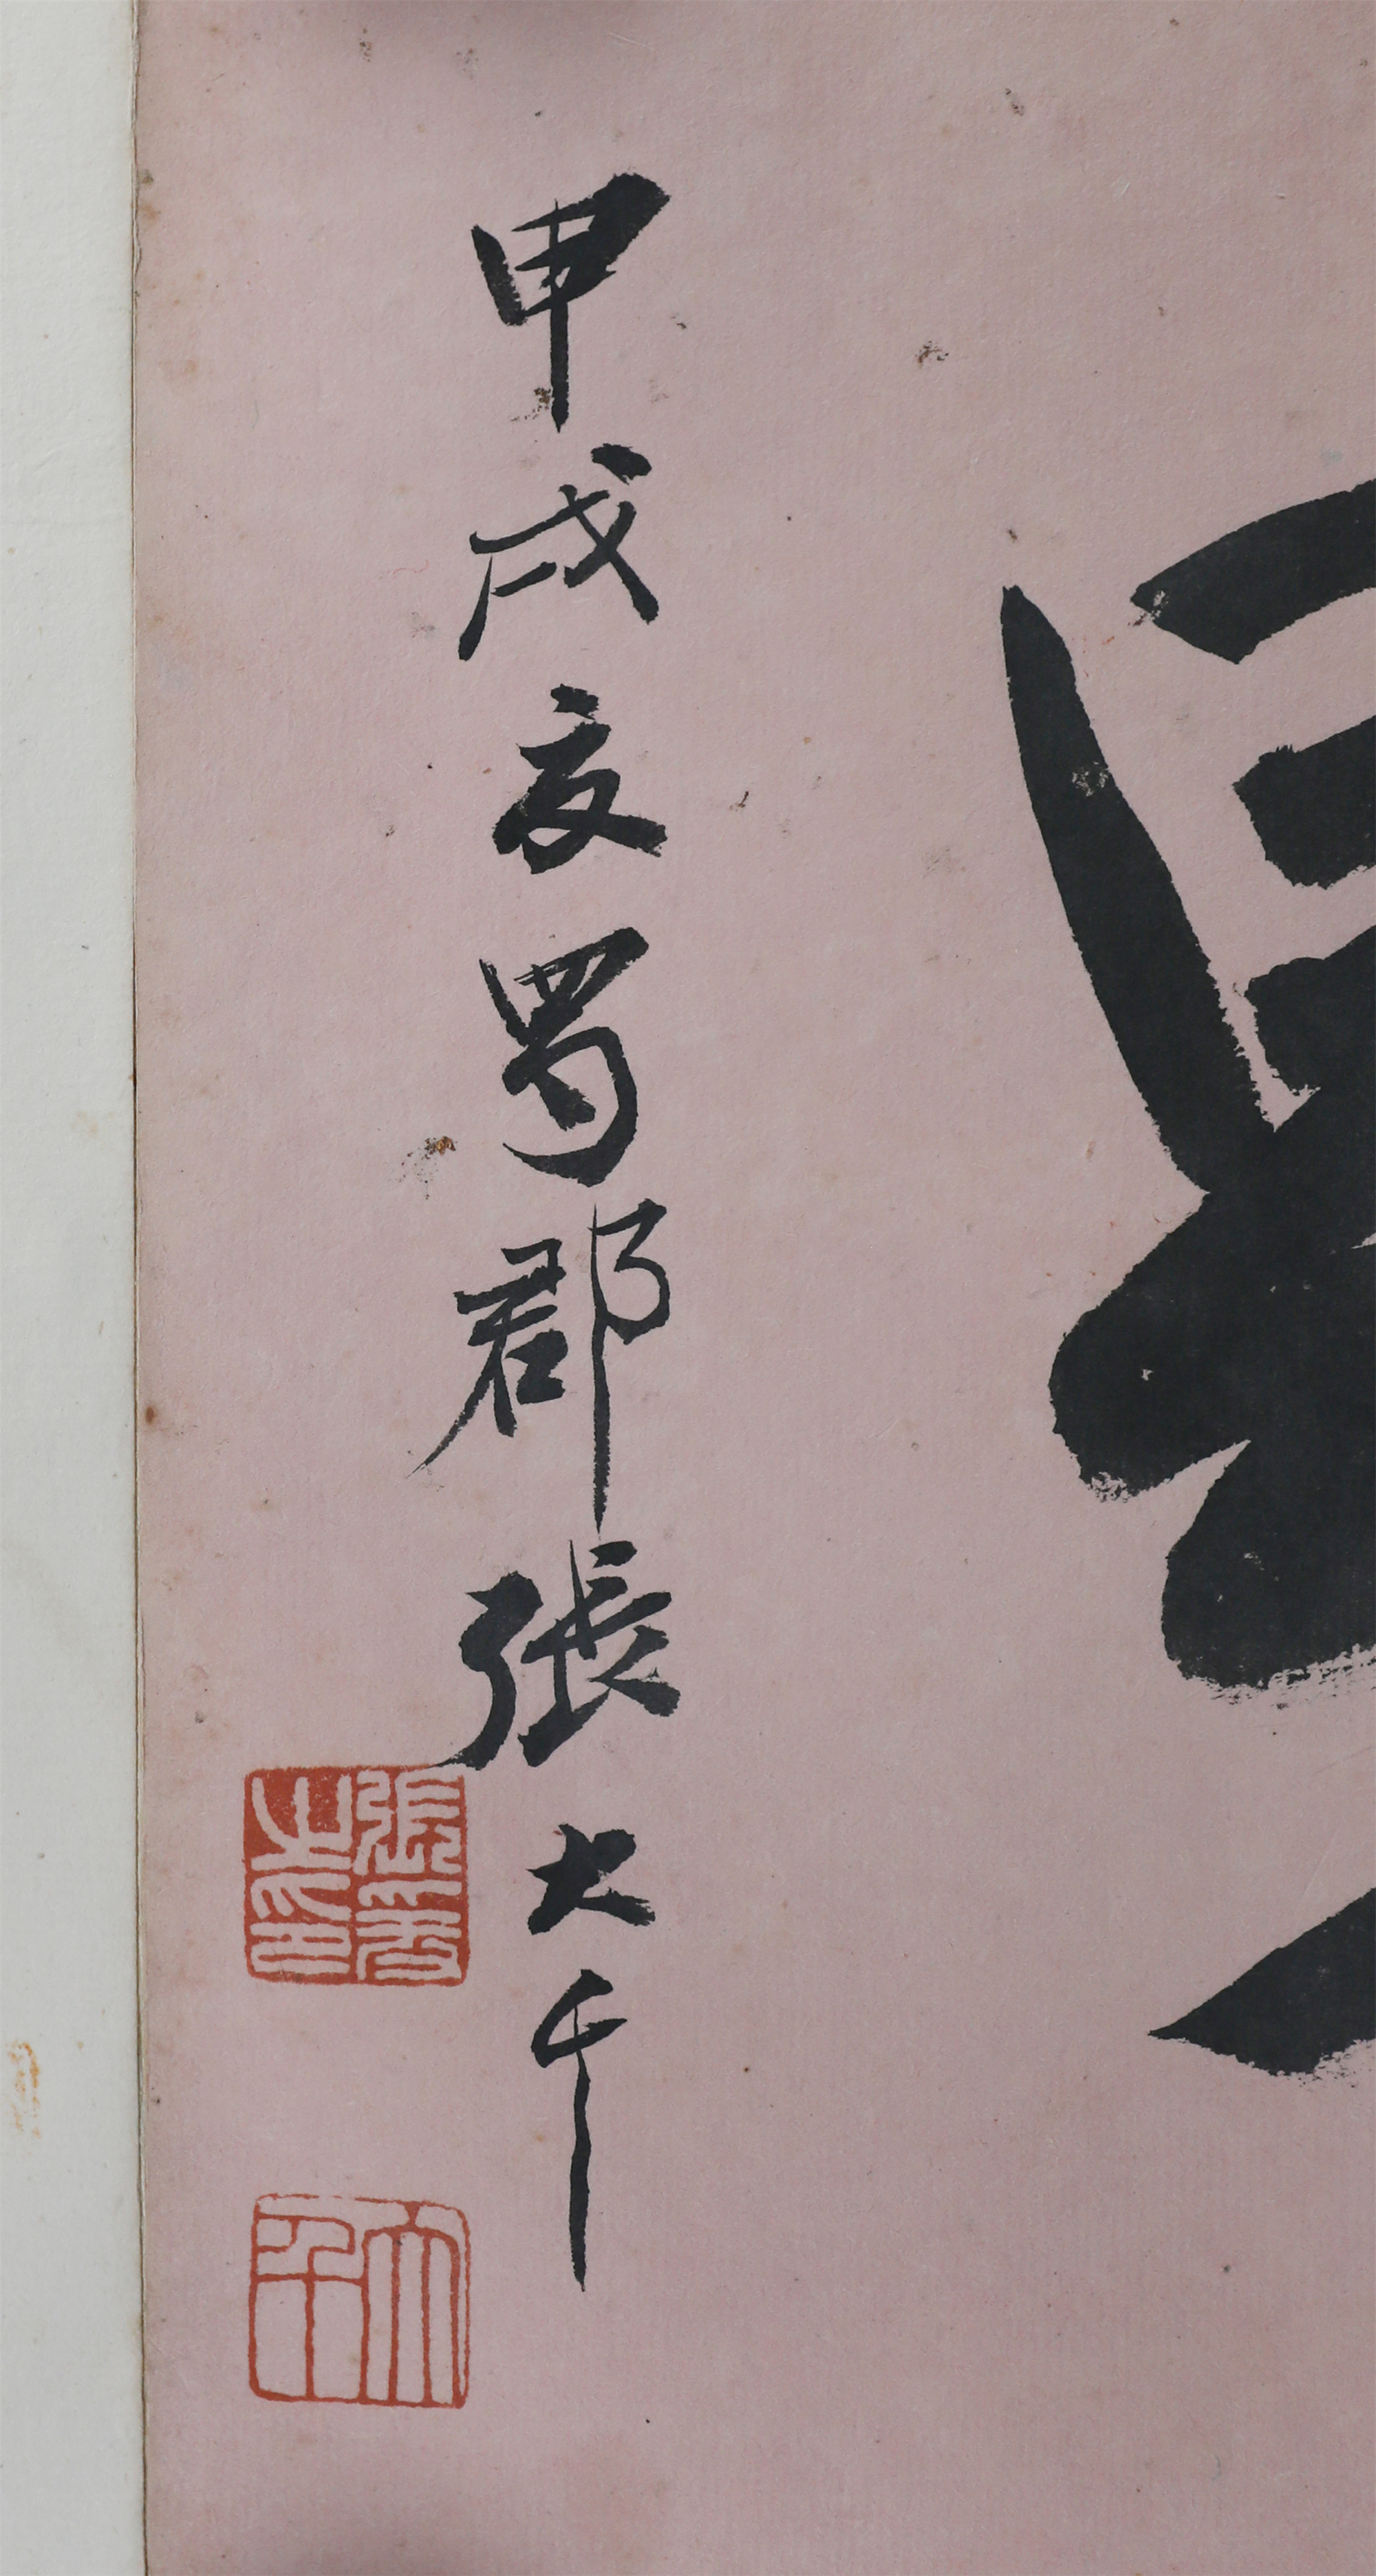 甲戌夏蜀郡張大千
張爰之印
大千